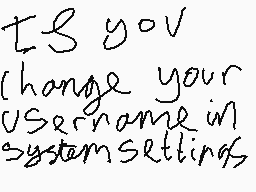 If you
change your
username in
system settings